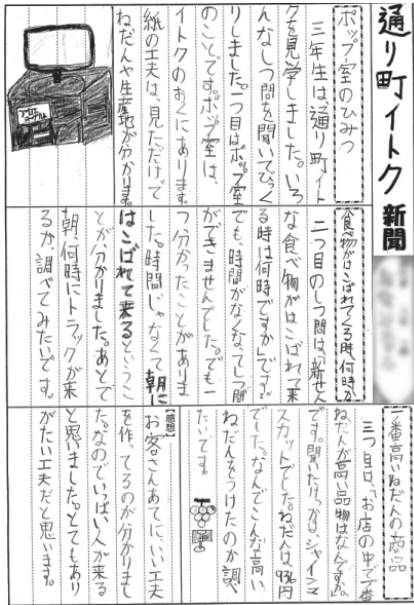 通り町イトク新聞
ポップ室のひみつ
三年生は、通り町イト
クを見学しました。いろ
んなしつ問を聞いてびっく
りしました。一つ目はポップ室
のことです。ポップ室は、
イトクのおくにあります。
紙の工夫は、見ただけで
ねだんや生産地が分かります。
食べ物がはこばれてくる時、何時か
二つ目のしつ問は、「新せん
な食べ物がはこばれて来
る時は何時ですか」です。
でも、時間がなくなってしつ問
ができませんでした。でも一
つ分かったことがありま
した。時間じゃなくて朝に
はこばれて来るというこ
とが分かりました。あとで
朝、何時にトラックが来
るか、調べてみたいです。
一番高いねだんの商品
三つ目は、「お店の中で一番
ねだんが高い品物はなんですか」
です。聞いたけっかはシャインマ
スカットでした。ねだんは936円
でした。なんでこんな高い
ねだんをつけたのか調べ
たいです。
【感想】
お客さんあてにいい工夫
を作ってるのが分かりまし
た。なのでいっぱい人が来る
と思いました。とてもあり
がたい工夫だと思います。